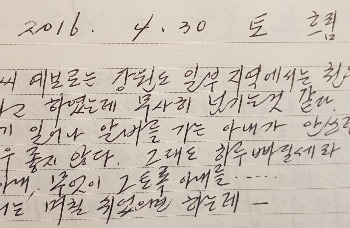 2016. 4. 30 토 흐림
씨 예보로는 강원도 일부 지역에서는 천우
라고 하였는데 무사히 넘기는것 같다
기 일어나 알바를 가는 아내가 안쓰러
우 좋지 않다. 그래도 하루빠질세라
아내. 무엇이 그토록 아내를 ......
너는 며칠 쉬었으면 하는데 –